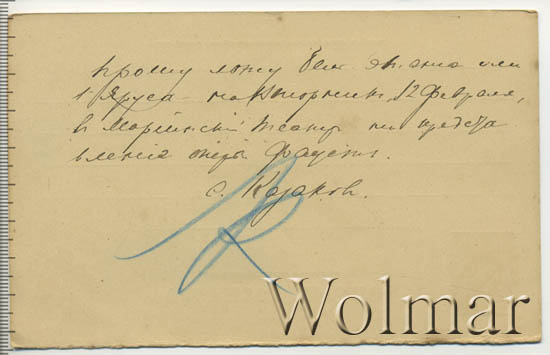 прошу ложу бель этажа или
1 яруса на Вторник, 12 февраля,
в Марiинскiй Театр на предста
вленiе оперы Фаустъ.
С. Казаков.
Wolmar